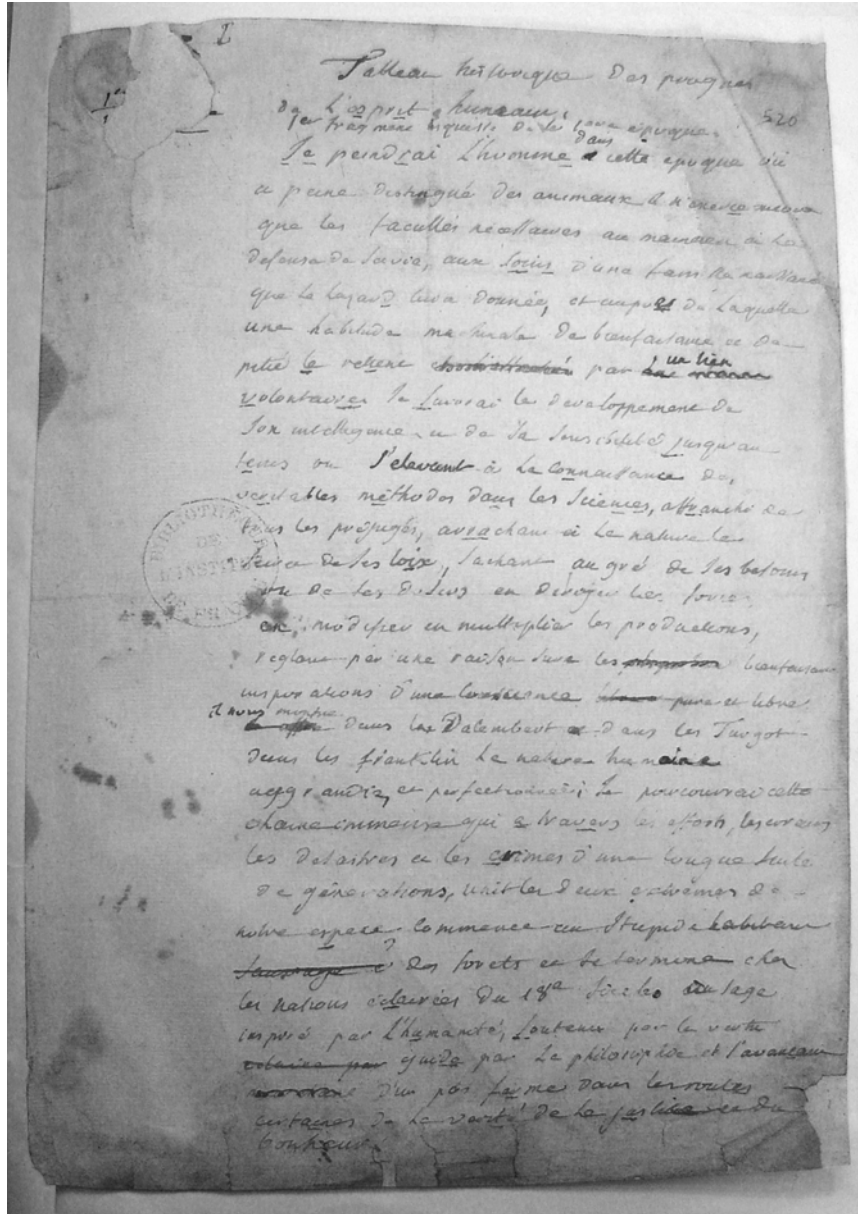 2
1er
1
520
Tableau historique des progres
de L'esprit humain,
1er fragment esquisse de la 1ere époque.
dans
Je peindrai L'homme a cette epoque où
a peine distingué des animaux il n'exerce encore
que les facultés nécessaires au maintien à la
defense de sa vie, aux soins d'une famille
que le hazard lui a donnée, et aupres de laquelle
une habitude machinale de bienfaisance et de
pitié le retient par un lien
volontaire, Je suivrai le developpement de
son intelligence et de sa sensibilité jusqu'au
tems ou s'elevant à la connaissance des
veritables méthodes dans les sciences, affranchi de
tous les préjugés, arrachant à la nature le
de ses loix, sachant au gré de ses besoins
ou de ses desirs en diriger les forces
en modifier en multiplier les productions,
reglant par une raison sure les bienfaisantes
inspirations d'une conscience pure et libre
il nous montre
dans les Dalembert dans les Turgot
dans les franklin la nature humaine
aggrandie, et perfectionnée; Je parcourrai cette
chaine immense qui a travers les efforts, les erreurs
les desastres et les crimes d'une longue suite
de générations, unit les deux extrêmes de
notre espece commence au stupide habitant
sauvage des forets et se termine chez
les nations éclairées du 18e siecle au sage
inspiré par L'humanité, soutenu par la vertu
eclairé par guidé par la philosophie et s'avançant
d'un pas ferme dans les routes
certaines de la verité de la justice et du
bonheur.
BIBLIOTHEQUE
DE
L'INSTITUT